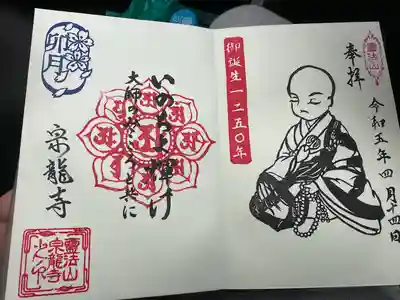 靈法山
奉拝
令和五年四月十四日
御誕生一二五〇年
いのちよ輝け
大師のみこころと共に
卯月
泉龍寺
靈法山
泉龍寺